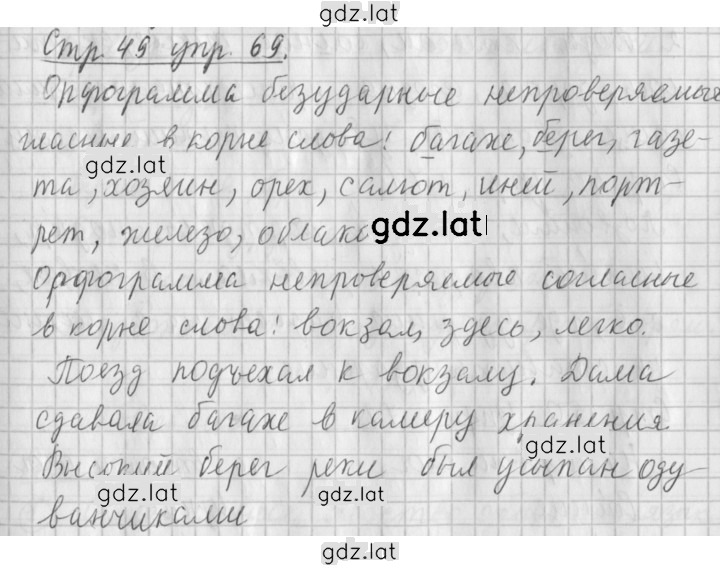 gdz.lat
Стр. 49 упр. 69.
Орфограмма безударные непроверяемые
гласные в корне слова: багаж, берег, газе-
gdz.lat
та, хозяин, орех, салют, иней, порт-
рет, железо, облако gdz.lat
Орфограмма непроверяемые согласные
в корне слова: вокзал, здесь, легко.
Поезд подъехал к вокзалу. Дама
сдавала багаж в камеру хранения
gdz.lat
Высокий берег реки был усыпан оду-
gdz.lat gdz.lat
ванчиками
gdz.lat